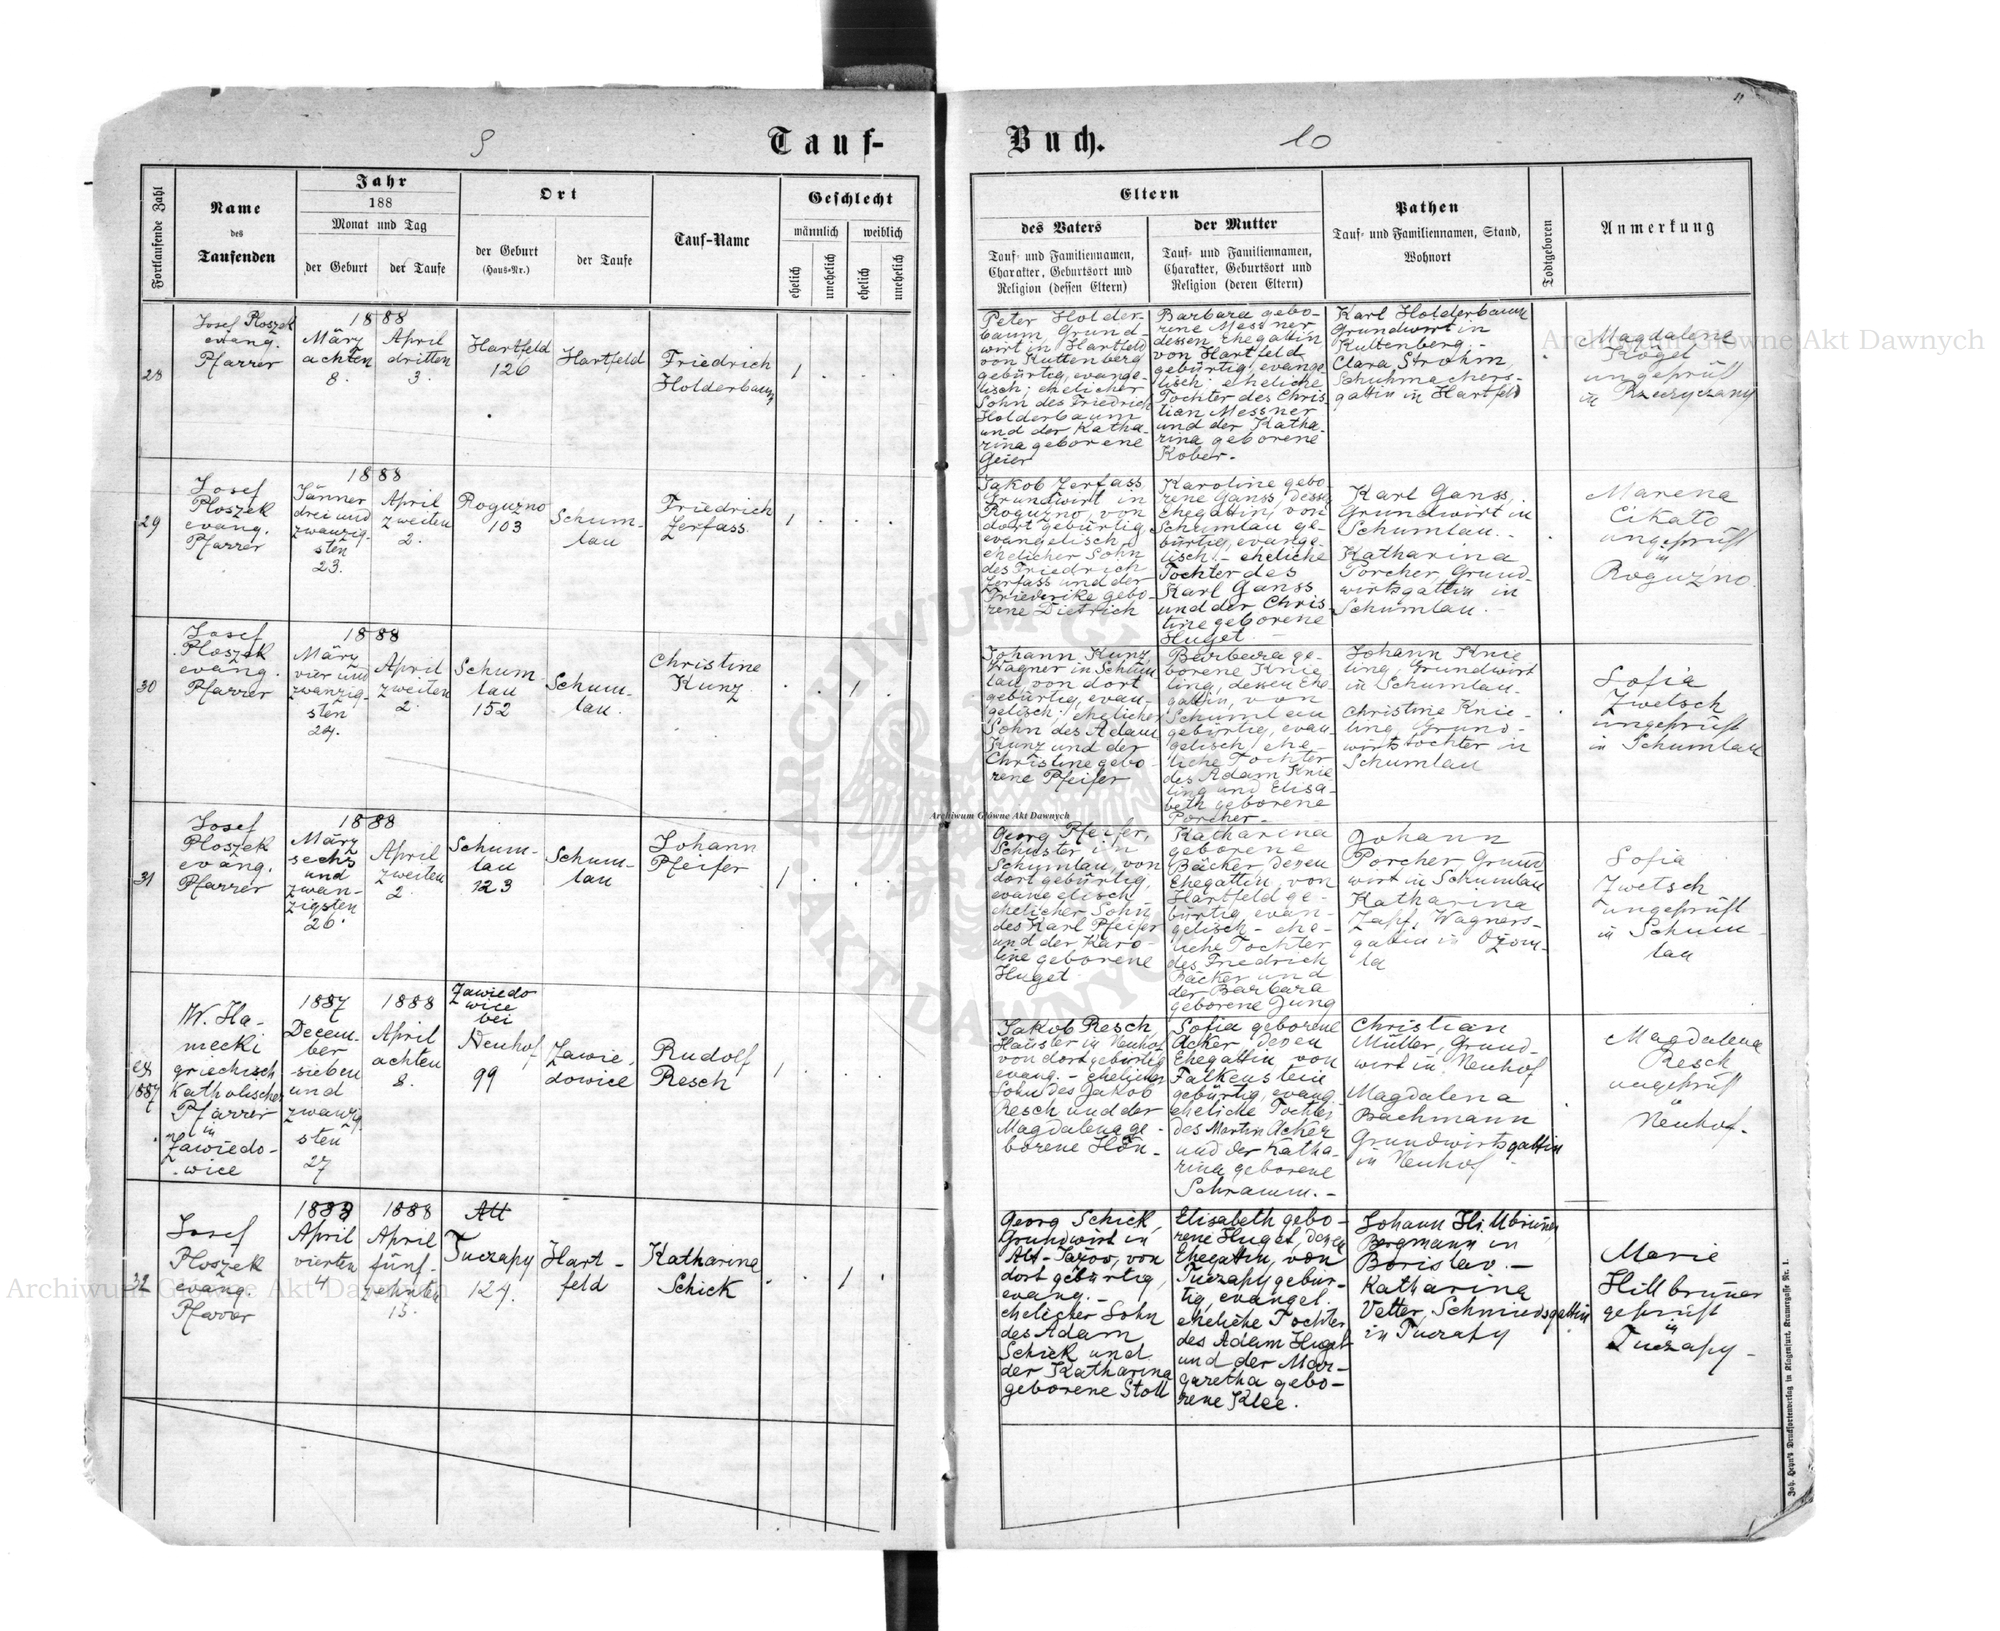 9
Tauf-
Buch.
10
11
Fortlaufende Zahl
Name
des
Taufenden
Jahr
188
Monat und Tag
der Geburt
der Taufe
Ort
der Geburt
(Haus-Nr.)
der Taufe
Tauf-Name
Geschlecht
männlich
weiblich
ehelich
unehelich
ehelich
unehelich
Eltern
des Vaters
Tauf- und Familiennamen,
Charakter, Geburtsort und
Religion (dessen Eltern)
der Mutter
Tauf- und Familiennamen,
Charakter, Geburtsort und
Religion (deren Eltern)
Pathen
Tauf- und Familiennamen, Stand,
Wohnort
Todtgeboren
Anmerkung
28
Josef Ploszek
evang.
Pfarrer
1888
März
achten
8.
April
dritten
3.
Hartfeld
126
Hartfeld
Friedrich
Holderbaum
1
Peter Holder-
baum Grund-
wirt in Hartfeld
von Kuttenberg
gebürtig, evange-
lisch; ehelicher
Sohn des Friedrich
Holderbaum
und der Katha-
rina geborene
Geier
Barbara gebo-
rene Messner
dessen Ehegattin
von Hartfeld
gebürtig, evange-
lisch; eheliche
Tochter des Chris
tian Messner
und der Katha-
rina geborene
Kober.
Karl Holderbaum
Grundwirt in
Kuttenberg.-
Clara Strohm
Schuhmachers-
gattin in Hartfeld
Magdalene
Kogel
ungeprüft
in Rzeczyczany
29
Josef
Ploszek
evang.
Pfarrer
1888
Jänner
drei und
zwanzig-
sten
23.
April
zweiten
2.
Roguzno
103
Schum-
lau
Friedrich
Zerfass
1
Jakob Zerfass
Grundwirt in
Roguzno, von
dort gebürtig,
evangelisch,
ehelicher Sohn
des Friedrich
Zerfass und der
Friederike gebo-
rene Dietrich
Karoline gebo-
rene Ganss, dessen
Ehegattin, von
Schumlau ge-
bürtig, evange-
lisch - eheliche
Tochter des
Karl Ganss
und der Chris-
tine geborene
Huget -
Karl Ganss,
Grundwirt in
Schumlau.-
Katharina
Porcher, Grund-
wirtsgattin in
Schumlau.
Marena
Cikato
ungeprüft
in
Roguzno.
30
Josef
Ploszek
evang.
Pfarrer
1888
März
vier und
zwanzig-
sten
24.
April
zweiten
2.
Schum
lau
152
Schum-
lau.
Christine
Kunz
1
Johann Kunz
Wagner in Schum
lau, von dort
gebürtig, evan-
gelisch; ehelicher
Sohn des Adam
Kunz und der
Christine gebo-
rene Pfeifer
Barbara ge-
borene Knie
ling, dessen Ehe
gattin, von
Schumlau
gebürtig, evan-
gelisch, ehe-
liche Tochter
des Adam Knie
ling und Elisa-
beth geborene
Porcher.
Johann Knie
ling, Grundwirt
in Schumlau.
Christine Knie-
ling, Grund-
wirtstochter in
Schumlau
Sofia
Zwetsch
ungeprüft
in Schumlau
31
Josef
Ploszek
evang.
Pfarrer
1888
März
sechs
und
zwan-
zigsten
26.
April
zweiten
2.
Schum-
lau
123
Schum-
lau
Johann
Pfeifer
1
Georg Pfeifer,
Schuster in
Schumlau, von
dort gebürtig,
evangelisch
ehelicher Sohn
des Karl Pfeifer
und der Karo-
line geborene
Huget
Katharina
geborene
Bäcker dessen
Ehegattin, von
Hartfeld ge-
bürtig, evan-
gelisch - ehe-
liche Tochter
des Friedrich
Bäcker und
der Barbara
geborene Jung
Johann
Porcher Grund
wirt in Schumlau
Katharina
Zapf, Wagners-
gattin in Ożom-
la
Sofia
Zwetsch
ungeprüft
in Schum-
lau
ex
1887
W. Ha-
necki
griechisch
Katholischer
Pfarrer
in
Zawiedo-
wice
1887
Decem-
ber
sieben
und
zwanzig-
sten
27
1888
April
achten
8.
Zawiedo
wice
bei
Neuhof
99
Zawie-
dowice
Rudolf
Resch
1
Jakob Resch,
Häusler in Neuhof
von dort gebürtig
evang. - ehelicher
Sohn des Jakob
Resch und der
Magdalena ge-
borene Hön-
Sofia geborene
Acker dessen
Ehegattin von
Falkenstein
gebürtig, evang
eheliche Tochter
des Martin Acker
und der Katha-
rina geborene
Schramm.-
Christian
Müller, Grund-
wirt in Neuhof
Magdalena
Bachmann
Grundwirtsgattin
in Neuhof -
Magdalena
Resch
ungeprüft
Neuhof.
32
Josef
Ploszek
evang.
Pfarrer
1888
April
vierten
4
1888
April
fünf-
zehnten
15.
Alt
Tuczapy
124.
Hart-
feld
Katharina
Schick
1
Georg Schick,
Grundwirt in
Alt-Jażow, von
dort gebürtig,
evang.-
ehelicher Sohn
des Adam
Schick und
der Katharina
geborene Stoll
Elisabeth gebo-
rene Huget, dessen
Ehegattin, von
Tuczapy gebür-
tig, evangel.
eheliche Tochter
des Adam Huget
und der Mar-
garetha gebo-
rene Klee.
Johann Hillbruner,
Bergmann in
Borislav.-
Katharina
Vetter, Schmiedsgattin
in Tuczapy
Marie
Hillbruner
geprüft
in
Tuczapy-
Joh. Heyn's Drucksortenverlag in Klagenfurt, Kramergasse Nr. 1.
Archiwum Główne Akt Dawnych
Archiwum Główne Akt Dawnych
Archiwum Główne Akt Dawnych
ARCHIWUM GŁÓWNE
AKT DAWNYCH